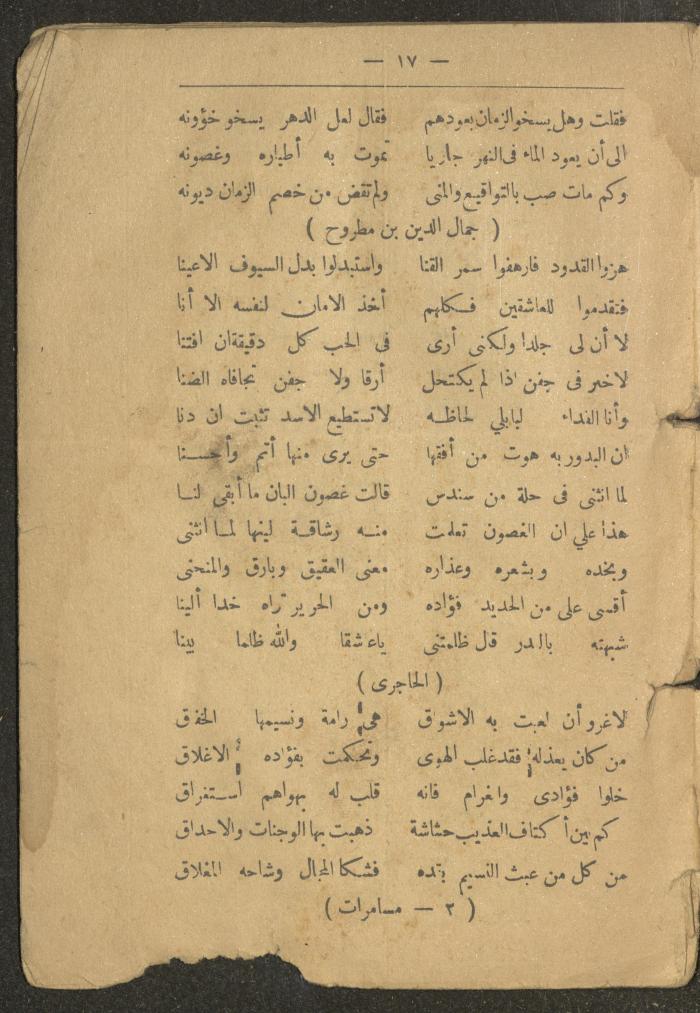 — ١٧ —
فقلت وهل يسخو الزمان بعودهم فقال لعل الدهر يسخو خؤونه
الى أن يعود الماء فى النهر جاريا تموت به أطياره وغصونه
وكم مات صب بالتواقيع والمنى ولم تقض من خصم الزمان ديونه
( جمال الدين بن مطروح )
هزوا القدود فارهفوا سمر القنا واستبدلوا بدل السيوف الاعينا
فتقدموا للعاشقين فكلهم أخذ الامان لنفسه الا أنا
لا أن لى جلدا ولكنى أرى فى الحب كل دقيقة ان افتنا
لا خير فى جفن اذا لم يكتحل أرقا ولا جفن تجافاه الضنا
وأنا الفداء لبابلي لحاظه لا تستطيع الاسد تثبت ان دنا
ان البدور به هوت من أفقها حتى يرى منها أتم وأحسنا
لما انثنى فى حلة من سندس قالت غصون البان ما أبقى لنا
هذا علي ان الغصون تعلمت منه رشاقة لينها لما انثنى
وبخده وبشعره وعذاره معنى العقيق وبارق والمنحنى
أقسى على من الحديد فؤاده ومن الحرير تراه خدا ألينا
شبهته بالبدر قال ظلمتنى ياعاشقا والله ظلما بينا
( الحاجرى )
لاغرو أن لعبت به الاشواق هى رامة ونسيمها الخفاق
من كان يعذله فقد غلب الهوى وتحكمت بفؤاده الاغلاق
خلوا فؤادى والغرام فانه قلب له بهواهم استغراق
كم بين أكناف العذيب حشاشة ذهبت بها الوجنات والاحداق
من كل من عبث النسيم بقده فشكا المجال وشاحه المغلاق
( ٣ — مسامرات )